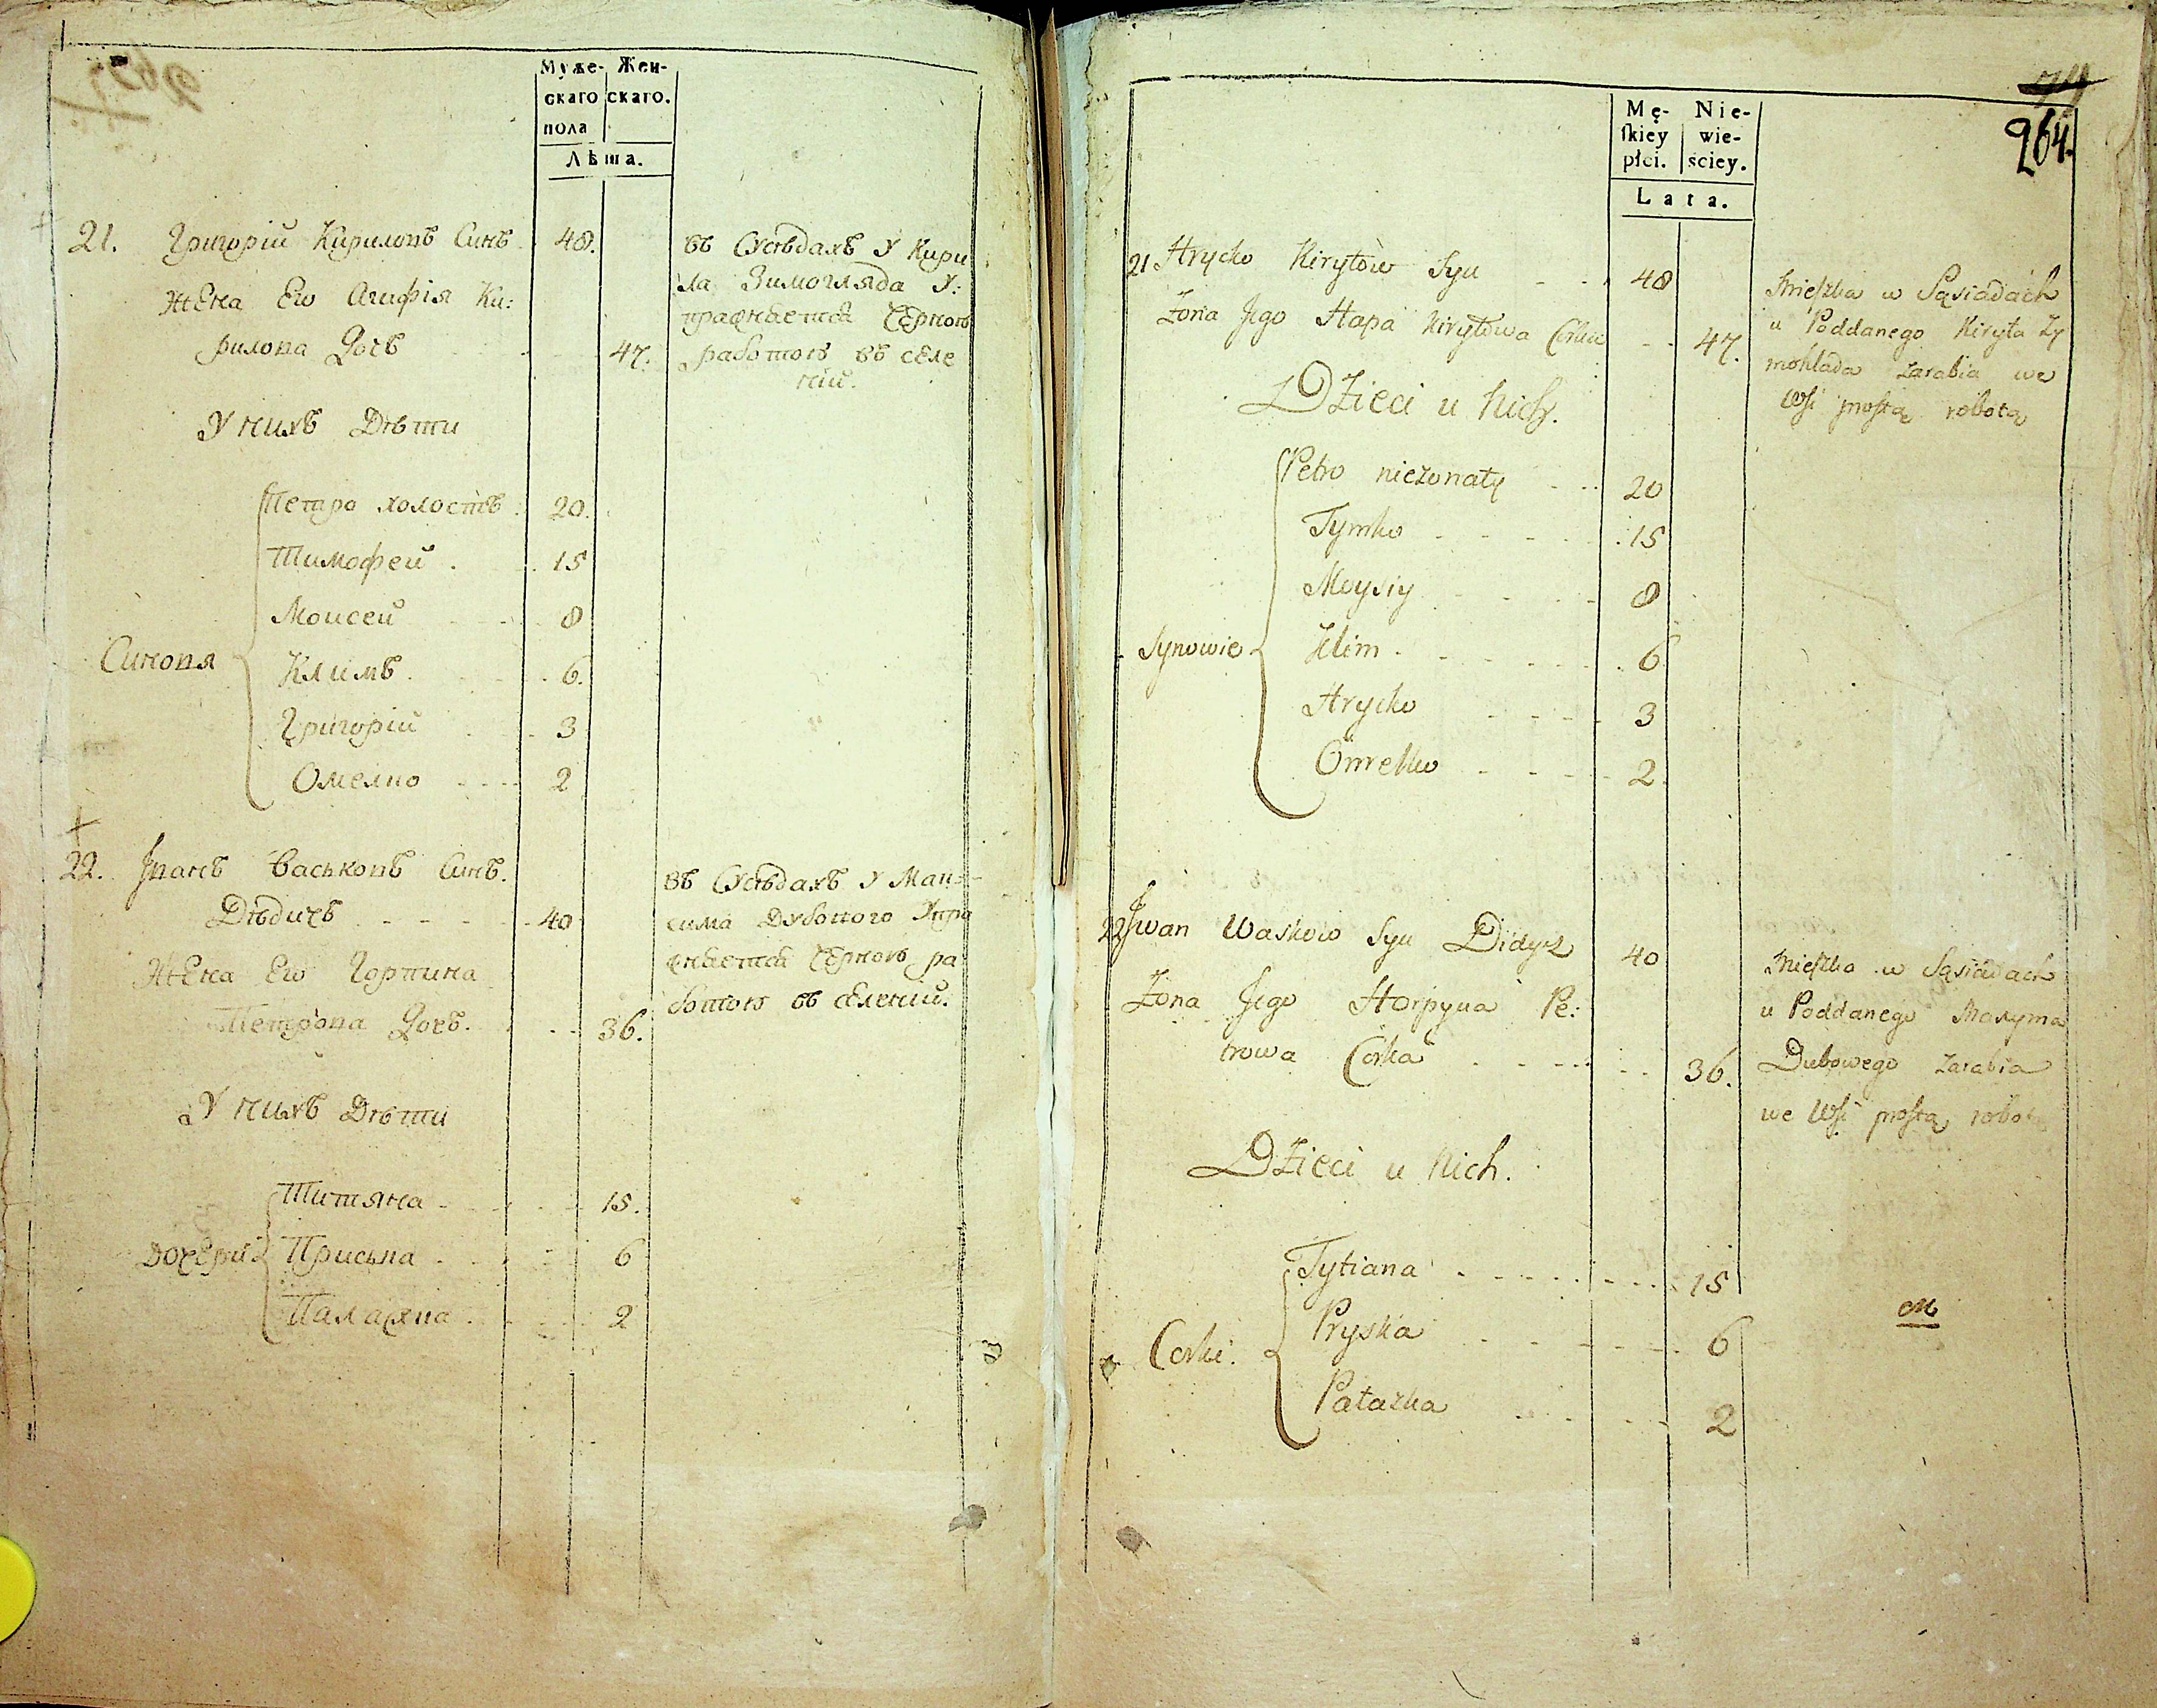 Муже- Жен-
скаго скаго.
пола
Лѣта.
21. Григорій Кириловъ Синъ 48.
Жена Его Агафія Ки:
рилова Дочъ 47.
въ Сусѣдахъ У Кири
ла Зимогляда У:
пражняется Чорною
работою въ селе
ніи.
У нихъ Дѣти
Петро холостъ 20.
Тимофей 15
Моисей 8
Синовя
Климъ 6.
Григорій 3
Омелко 2
22. Іванъ Васьковъ Синъ.
Дѣдичъ 40
Жена Его Горпина
Петрова Дочъ. 36.
Въ Сусѣдахъ У Мак=
сима Дубового Упра
жняется Чорною ра
ботою въ селеніи.
У нихъ Дѣти
Титяна 15.
Дочери Приська 6
Палажка 2
264.
Mę- Nie-
ſkiey wie-
płci. ściey.
Lata.
21 Hrycko Kiryłòw Syn 48
Żona Jego Hapa Kiryłowa Corka 47.
Mieſzka w Sąsiadach
u Poddanego Kiryła Zy
mohlada zarabia we
Wſi proſtą robotą
Dzieci u Nich.
Petro nieżonaty 20
Tymko 15
Moysiy 8
Synowie Klim 6
Hrycko 3
Omelko 2
22 Jwan Waskow Syn Didycz 40
Żona Jego Horpyna Pe:
trowa Corka 36.
Mieſzka w Sąsiadach
u Poddanego Maxyma
Dubowego zarabia
we Wſi proſtą robotą
Dzieci u Nich.
Tytiana 15
Pryska 6
Corki.
Pałazka 2